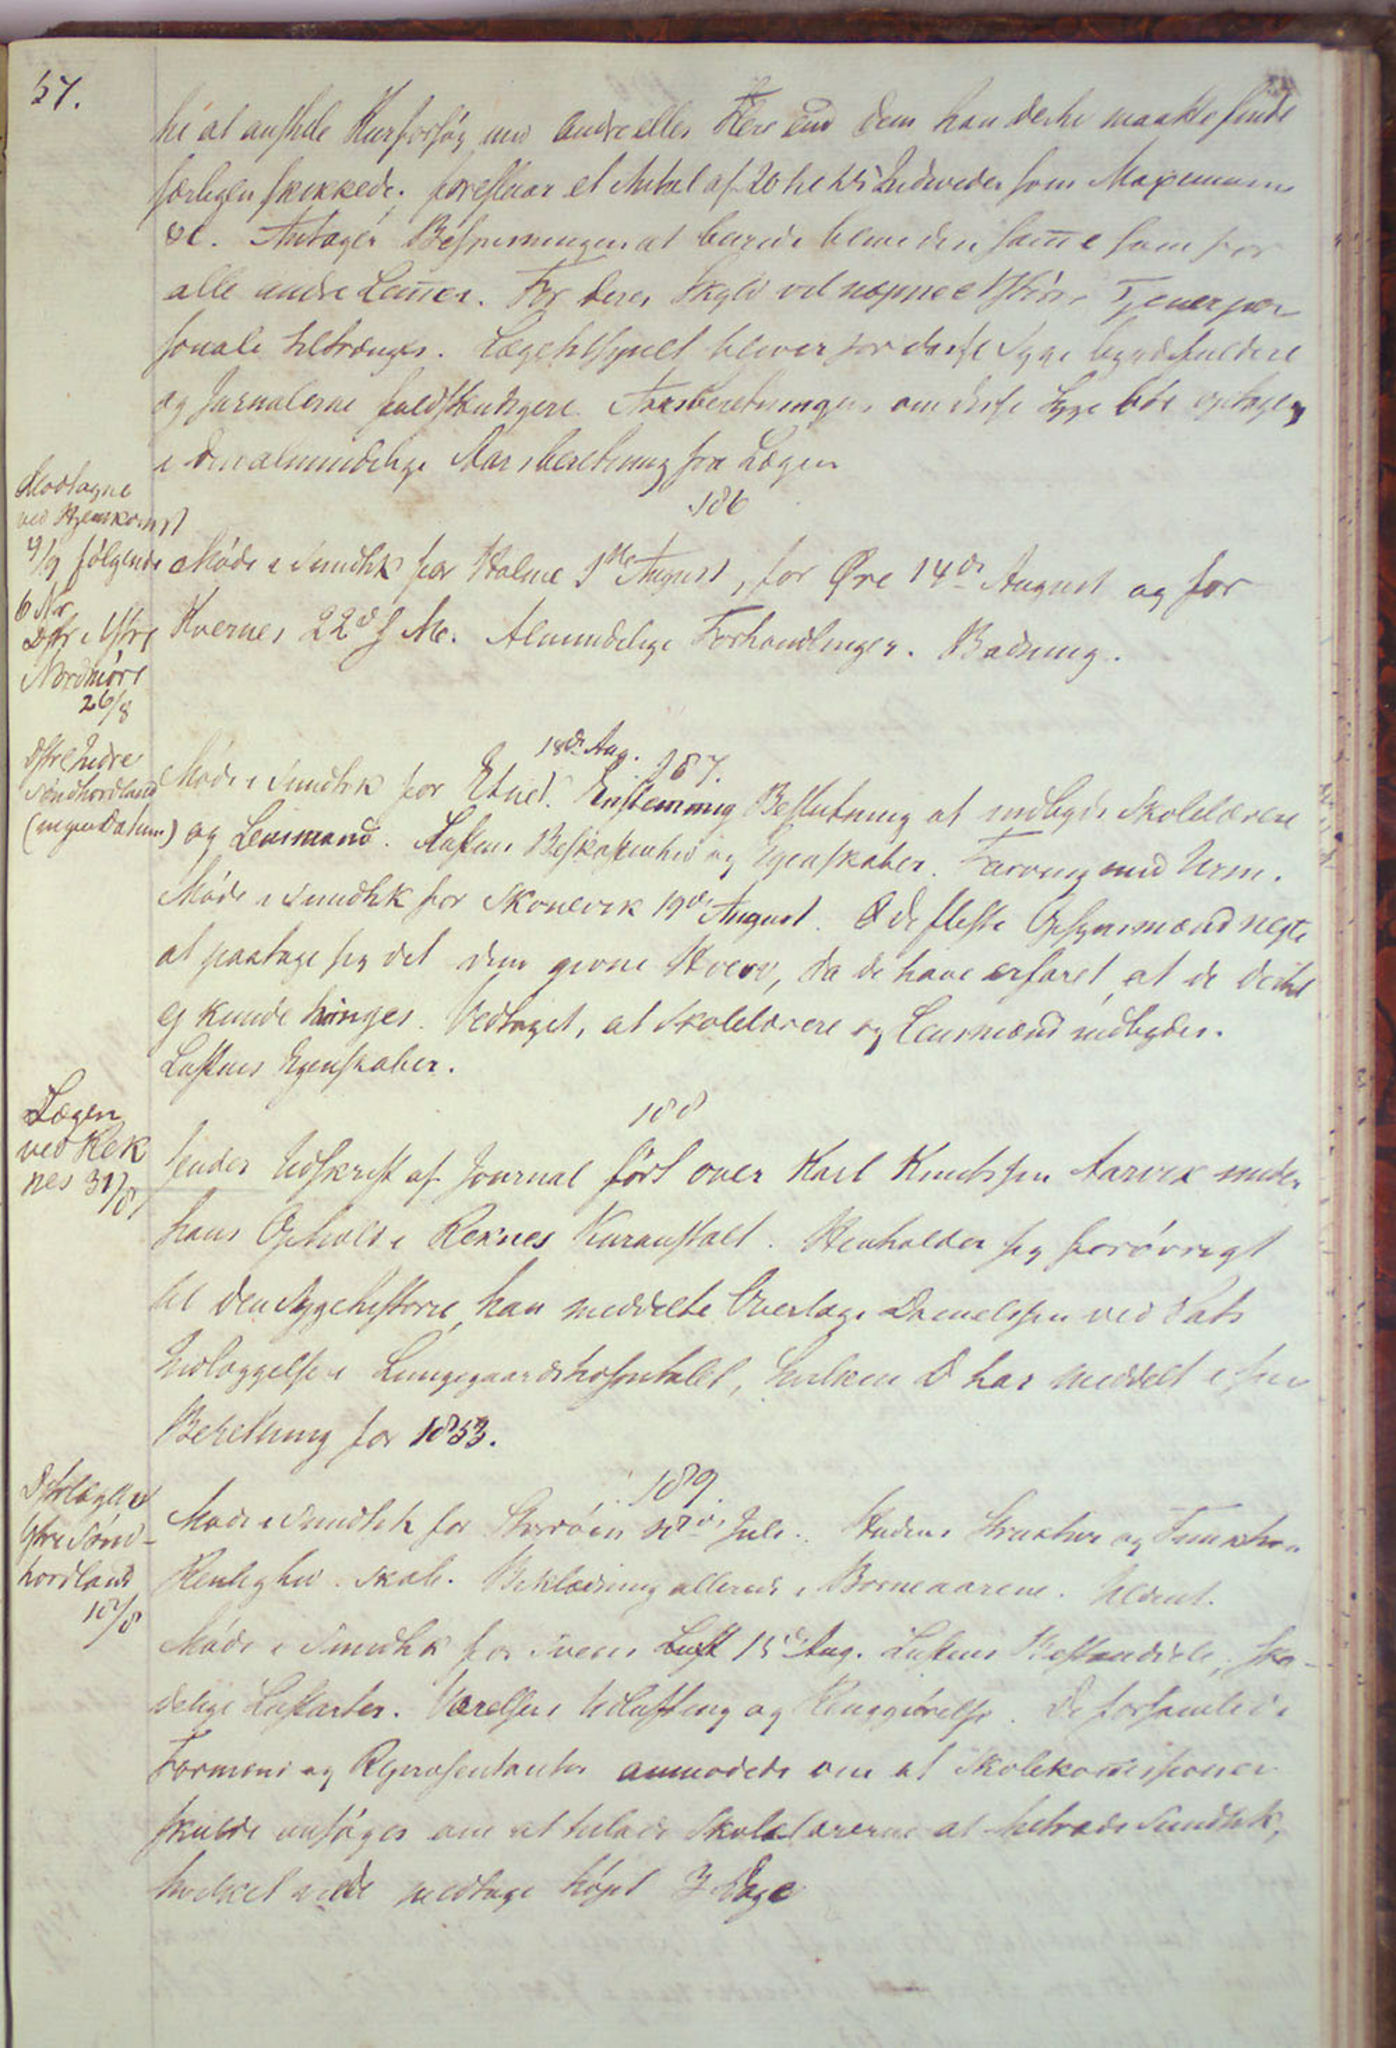 57.
til at anstille Kurforsøg med andre eller Flere end dem han dertil maatte finde
særligen skikkede; foreslaar et Antal af 20 til 25 Individer som Maximum
&c. Antager Bespisningen at burde blive den samme som for
alle andre Lemmer. For deres Skyld vil næppe et større Tjenerper-
sonale tiltrænges. Lægetilsynet bliver for disse Syge byrdefuldere
og Jurnalerne fuldstændigere. Aarsberetningen om disse Syge bør optages
i den almindelige Aarsberetning fra Lægen
Modtagne
ved Hjemkomst
9/9 følgende
6 Nr
Dstr. i Ytre
Nordmøre
26/8
186
Møde i Sundhk for Halme 9de August, for Øre 14de August og for
Kvernes 22de s. M. Almindelige Forhandlinger. Badning.
Dstrl Indre
Søndhordland
(ingen Datum)
18de Aug. 187.
Møde i Sundhk for Etne. Enstemmig Beslutning at indbyde Skolelærere
og Lensmand. Luftens Beskaffenhed og Egenskaber. Farvning med Urin.
Møde i Sundhk for Skonevik 19de August. De fleste Opsynsmænd negte
at paatage sig det dem givne Hverv, da de have erfaret, at de dertil
ej kunde tvinges. Vedtaget, at Skolelærere og Lensmænd indbydes.
Luftens Egenskaber.
Lægen
ved Rek
nes 31/8
188
sender Udskrift af Journal ført over Karl Knudssen Aarvik under
hans Ophold i Reknes Kuranstalt. Henholder sig forøvrigt
til den Sygehistorie, han meddelte Overlæge Danielssen ved Pats
Indlæggelse i Lungegaardshospitalet, hvilken D har meddelt i sin
Beretning for 1853.
Dstrlægen i
Ytre Sønd-
hordland
18/8
189.
Møde i Sundhk for Storøen 28de Juli. Hudens Struktur og Funktion
Renlighed. Skab. Beklædning allerede i Barneaarene. Uldent.
Møde i Sundhk for Sveen Luft 15de Aug. Luftens Bestanddele, ska-
delige Luftarter. Værelsers Udluftning og Rengjørelse. De forsamlede
Formænd og Repræsentanter anmodede om at Skolekommissionen
skulde ansøges om at tillade Skolelærerne at tiltræde Sundhk,
hvilket vilde medtage høist 3 Dage